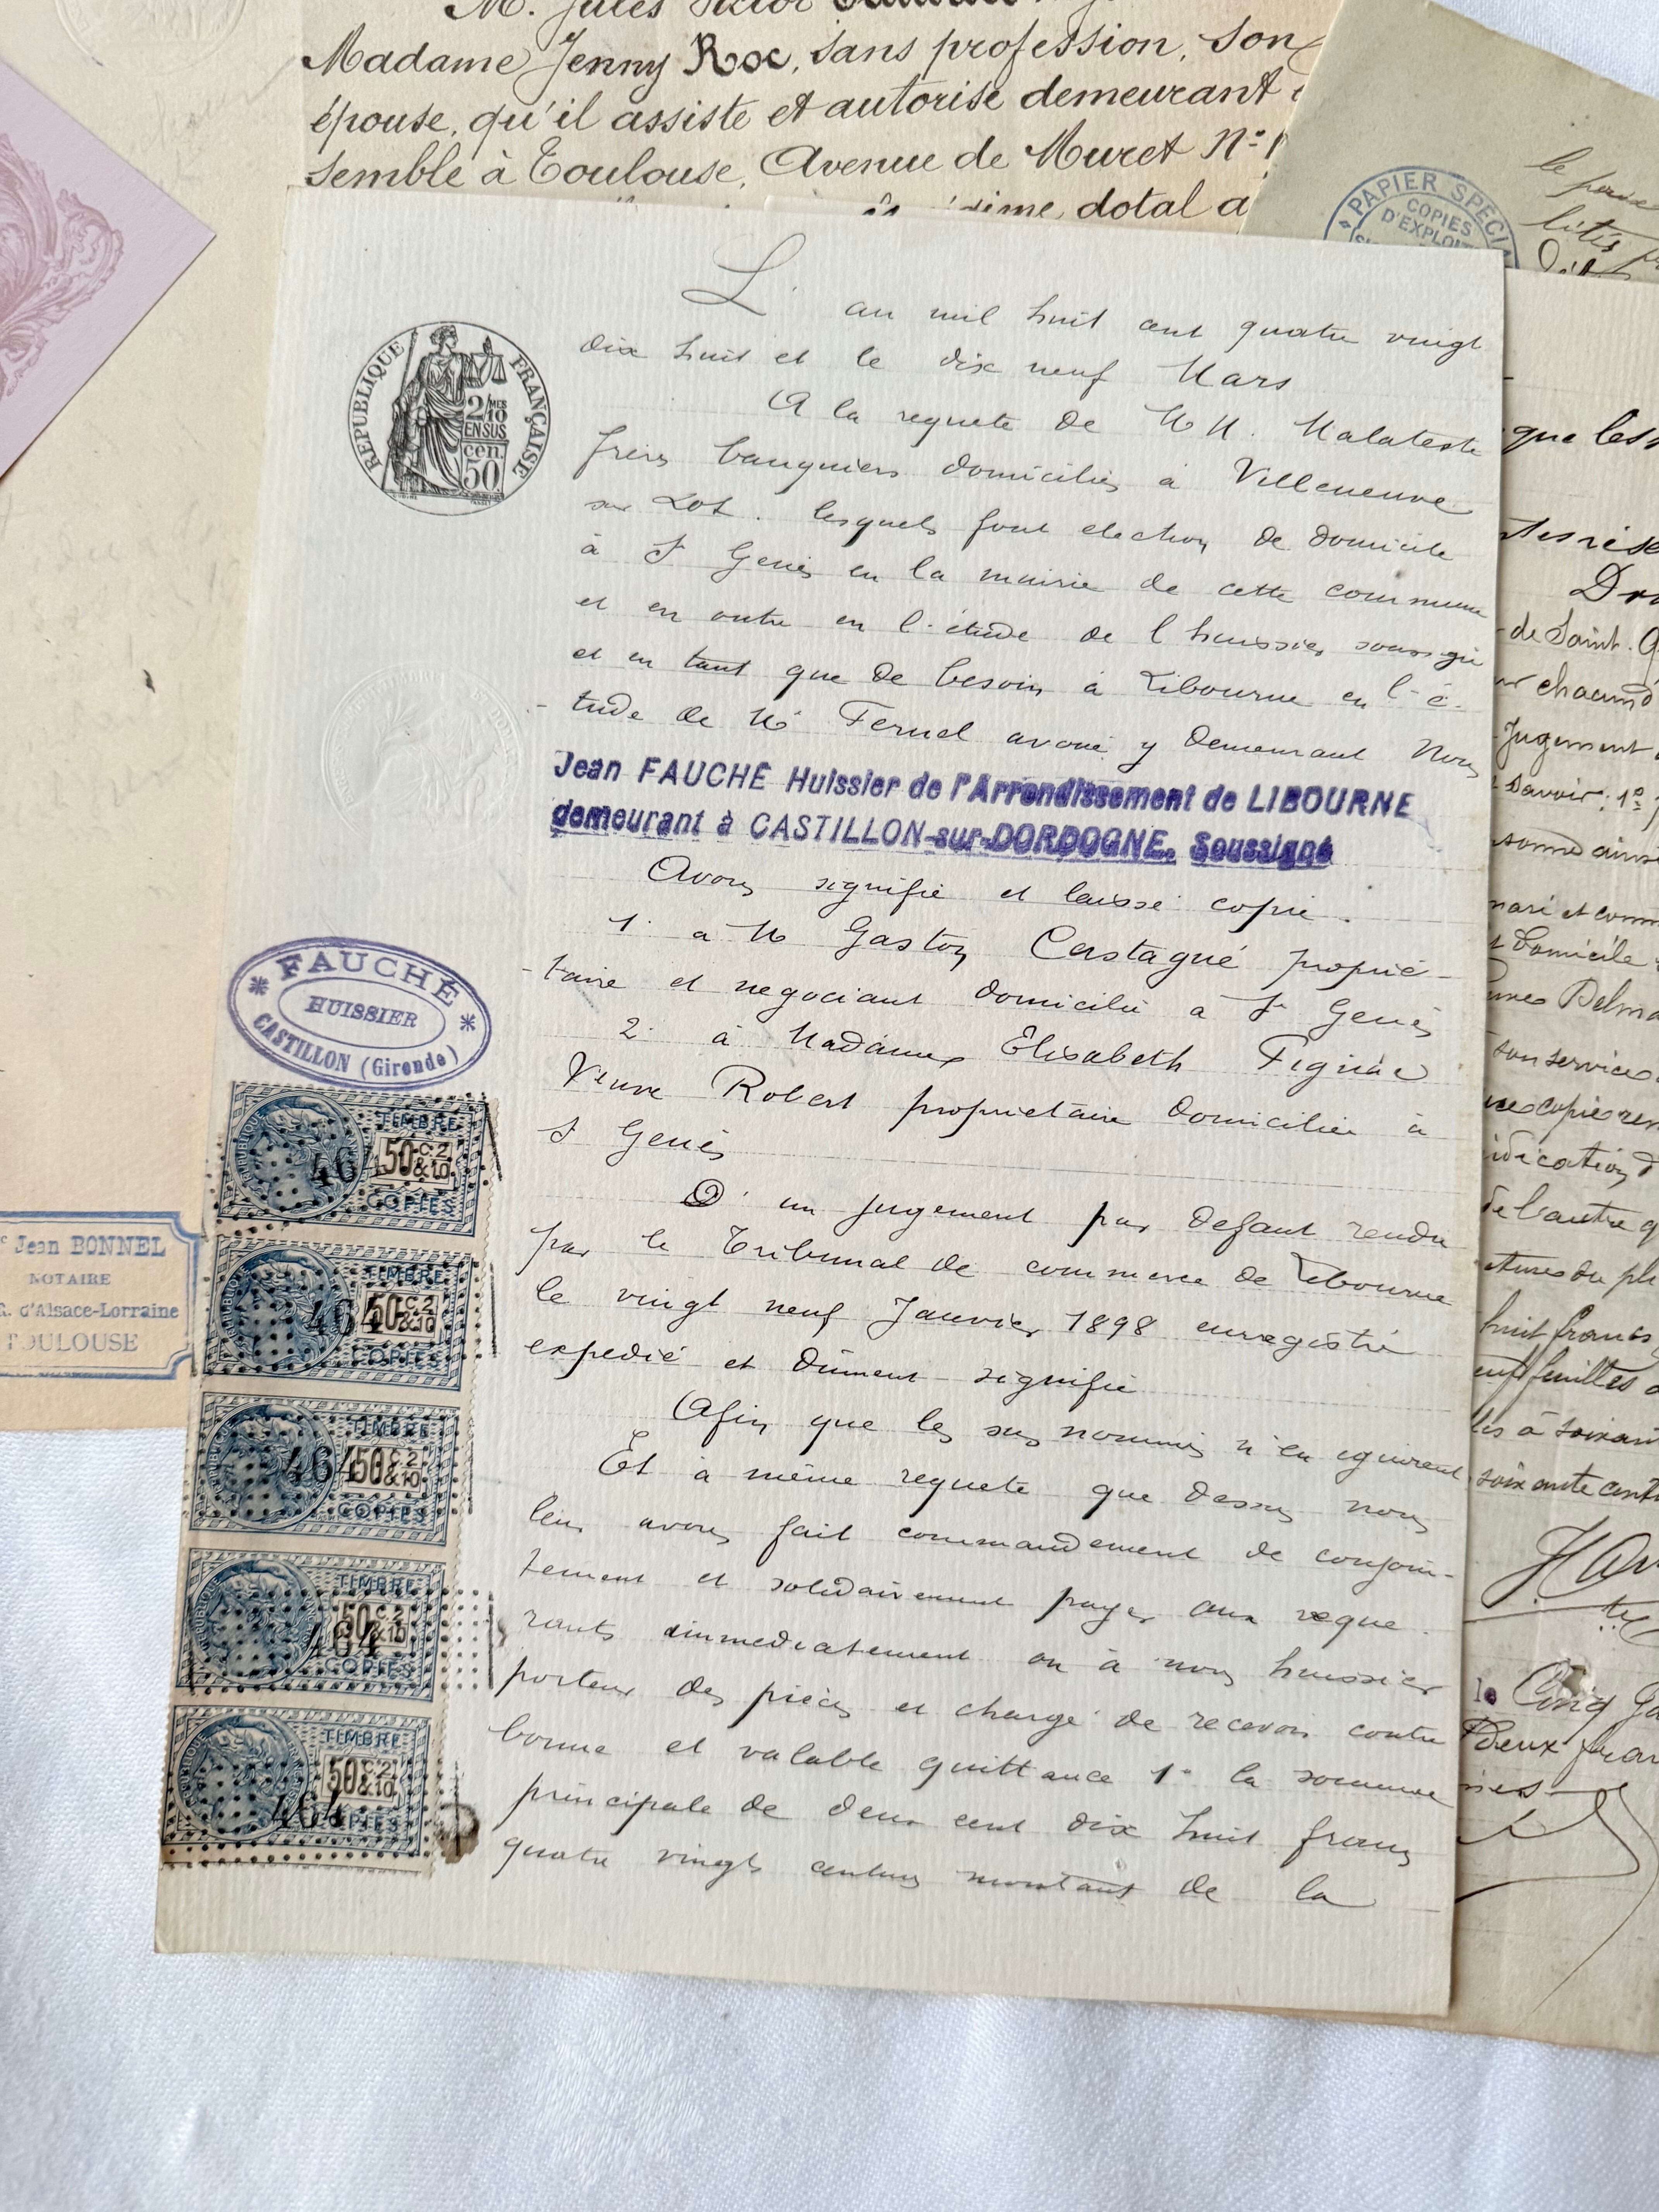 M. Jules
Madame Jenny Roc, sans profession, son
épouse, qu'il assiste et autorise demeurant
semble à Toulouse, Avenue de Muret N°
dotal a
PAPIER SPÉCI
COPIES
D'EXPLOIT
le
L'an mil huit cent quatre vingt
dix huit et le dix neuf Mars
A la requete de MM. Malateste
frères banquiers domiciliés à Villeneuve
sur Lot. lesquels font election de domicile
à St Genès en la mairie de cette commune
et en outre en l'étude de l huissier soussigné
et en tant que de besoin à Libourne en l'é-
tude de Me Fernel avoué y demeurant Nous
Jean FAUCHÉ Huissier de l'Arrondissement de LIBOURNE
demeurant à CASTILLON-sur-DORDOGNE, Soussigné
Avons signifié et laissé copie.
1° a M Gaston Castagné proprié-
taire et negociant domicilié a St Genès
2° à Madame Elisabeth Fignac
Veuve Robert proprietaire domiciliée à
St Genès
D'un jugement par defaut rendu
par le Tribunal de commerce de Libourne
le vingt neuf Janvier 1898 enregistré
expedié et dûment signifié
Afin que les sus nommés n'en ignorent
Et à même requete que dessus nous
leur avons fait commandement de conjoin-
tement et solidairement payer aux reque-
rants immediatement ou à nous huissier
porteur des pièces et chargé de recevoir contre
bonne et valable quittance 1° la somme
principale de deux cent dix huit francs
quatre vingts centimes montant de la
REPUBLIQUE FRANÇAISE
2/10 MES
EN SUS
cen.
50
FAUCHÉ
HUISSIER
CASTILLON (Gironde)
TIMBRE
464
50 C. 2 & 10
COPIES
TIMBRE
464
50 C. 2 & 10
COPIES
TIMBRE
464
50 C. 2 & 10
COPIES
TIMBRE
50 C. 2 & 10
464
COPIES
TIMBRE
50 C. 2 & 10
464
COPIES
Jean BONNEL
NOTAIRE
R. d'Alsace-Lorraine
TOULOUSE
que les
de Saint. G
chacun
Jugement
savoir: 1°
ainsi
mari et comm
domicile
Delma
son service
copie rem
de l'autre
du pl
huit francs
feuilles
à soixant
soixante cent
Cinq
Deux fran